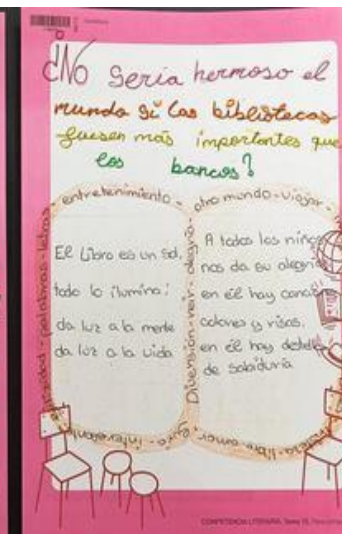 ¿No sería hermoso el
mundo si las bibliotecas
fuesen más importantes que
los bancos?
entretenimiento - otro mundo - viajar -
palabras - letras
Diversión - reír - alegría
El Libro es un sol,
todo lo ilumina:
da luz a la mente
da luz a la vida
A todos los niños
nos da su alegría
en él hay
colores y risas,
en él hay
de sabiduría
interesante
libre - amor
COMPETENCIA LITERARIA.